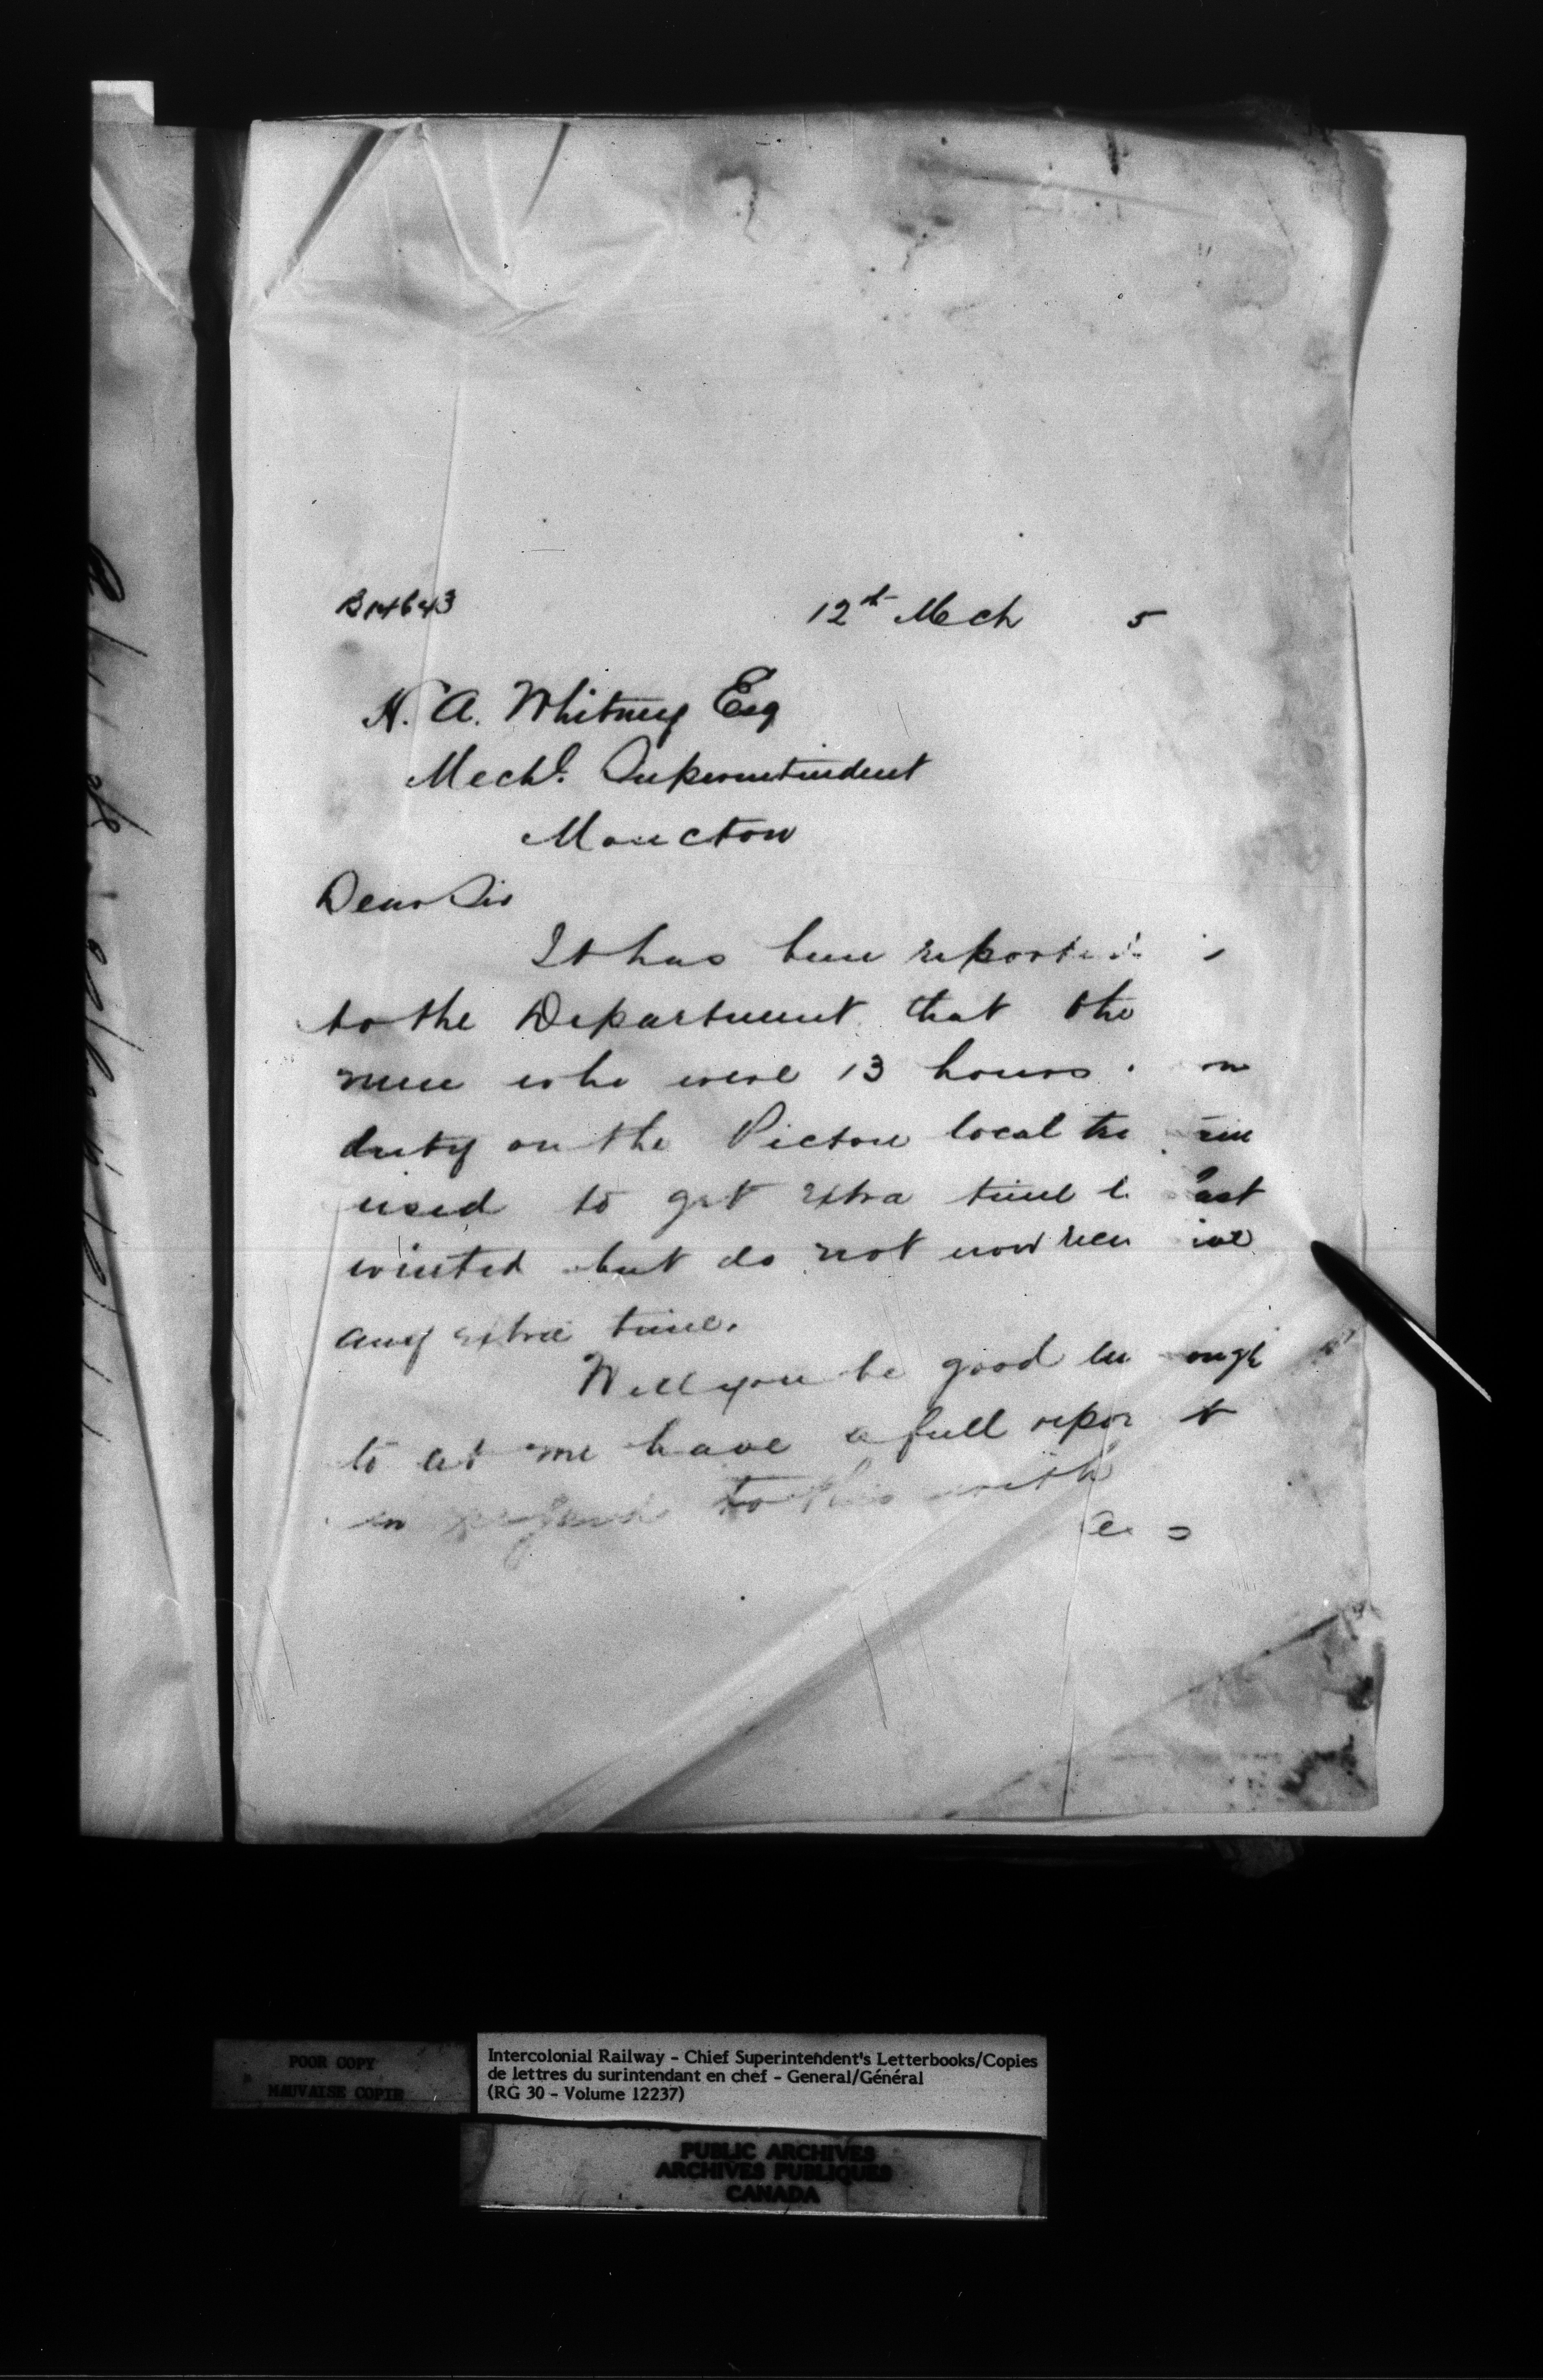 B14643
12th Mech 5
H. A. Whitney Esq
Mechl. Superintendent
Moncton
Dear Sir
It has been reported
to the Department that the
men who were 13 hours on
duty on the Pictou local train
used to get extra time last
winter but do not now receive
any extra time.
Will you be good enough
to let me have a full report
in regard to this with
POOR COPY
MAUVAISE COPIE
Intercolonial Railway - Chief Superintendent's Letterbooks/Copies
de lettres du surintendant en chef - General/Général
(RG 30 - Volume 12237)
PUBLIC ARCHIVES
ARCHIVES PUBLIQUES
CANADA